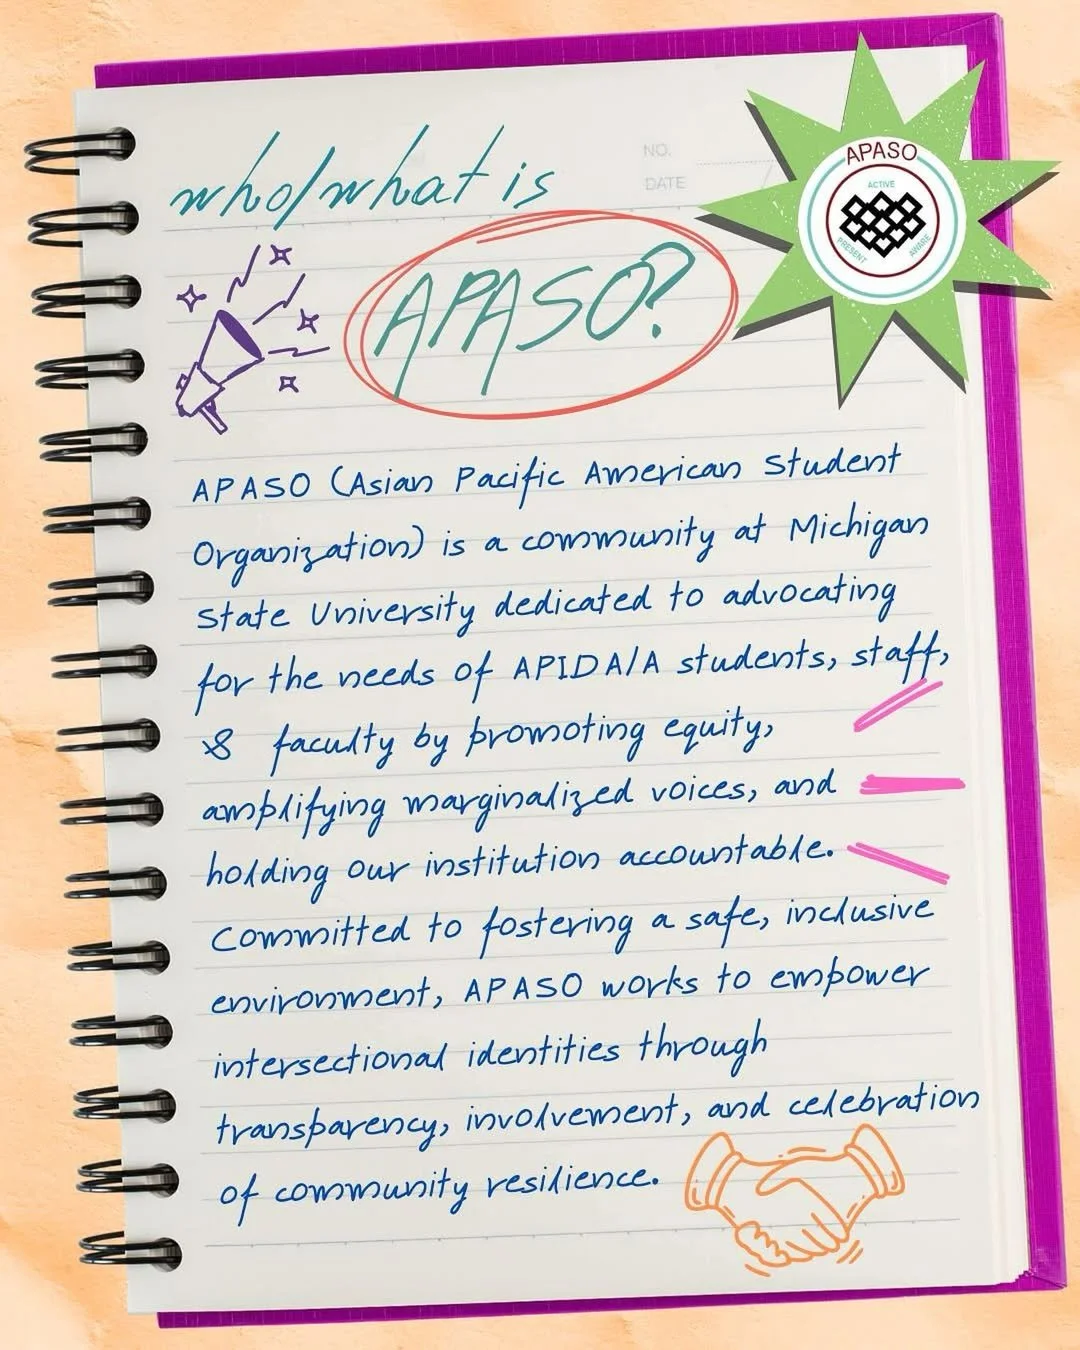 who/what is
APASO?
NO.
DATE
APASO
ACTIVE
PRESENT
AWARE
APASO (Asian Pacific American Student
Organization) is a community at Michigan
State University dedicated to advocating
for the needs of APIDA/A students, staff,
& faculty by promoting equity,
amplifying marginalized voices, and
holding our institution accountable.
Committed to fostering a safe, inclusive
environment, APASO works to empower
intersectional identities through
transparency, involvement, and celebration
of community resilience.